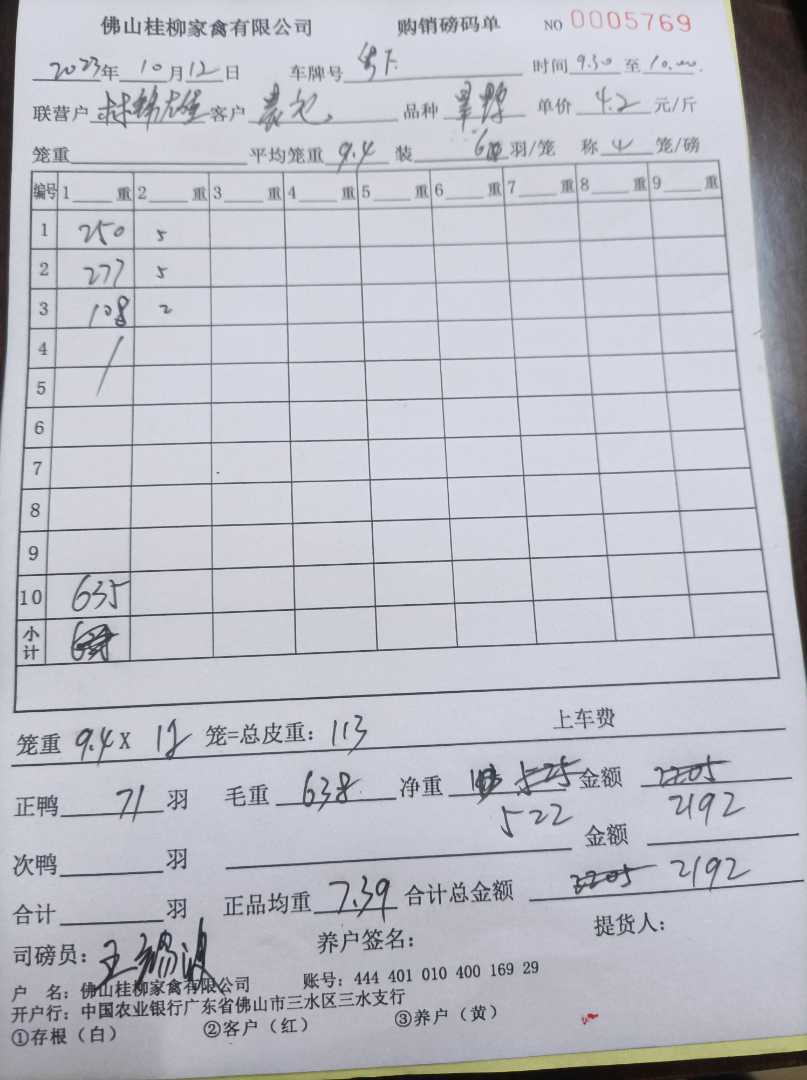 佛山桂柳家禽有限公司 购销磅码单 NO 0005769
2023年10月12日 车牌号 时间9.30至10.00.
联营户 客户 品种 单价4.2元/斤
笼重 平均笼重9.4 装6羽/笼 称 笼/磅
编号 1 重 2 重 3 重 4 重 5 重 6 重 7 重 8 重 9 重
1 250 5
2 277 5
3 108 2
4
5
6
7
8
9
10 635
小计
笼重 9.4 X 12 笼=总皮重: 113 上车费
正鸭71羽 毛重638 净重 525 金额 2205
522 2192
次鸭 羽 金额
合计 羽 正品均重7.39 合计总金额 2205 2192
司磅员: 养户签名: 提货人:
户 名: 佛山桂柳家禽有限公司 账号: 444 401 010 400 169 29
开户行: 中国农业银行广东省佛山市三水区三水支行
①存根（白） ②客户（红） ③养户（黄）